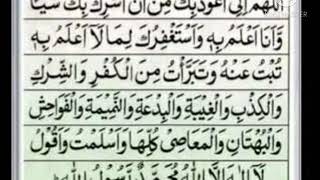 اَللّٰهُمَّ اِنِّیْ اَعُوْذُ بِكَ مِنْ اَنْ اُشْرِكَ بِكَ شَیْئًا
وَّاَنَا اَعْلَمُ بِهٖ وَاَسْتَغْفِرُكَ لِمَا لَا اَعْلَمُ بِهٖ
تُبْتُ عَنْهُ وَتَبَرَّأْتُ مِنَ الْكُفْرِ وَالشِّرْكِ
وَالْكِذْبِ وَالْغِیْبَةِ وَالْبِدْعَةِ وَالنَّمِیْمَةِ وَالْفَوَاحِشِ
وَالْبُهْتَانِ وَالْمَعَاصِیْ كُلِّهَا وَاَسْلَمْتُ وَاَقُوْلُ
لَا اِلٰهَ اِلَّا اللّٰهُ مُحَمَّدٌ رَّسُوْلُ اللّٰهِ